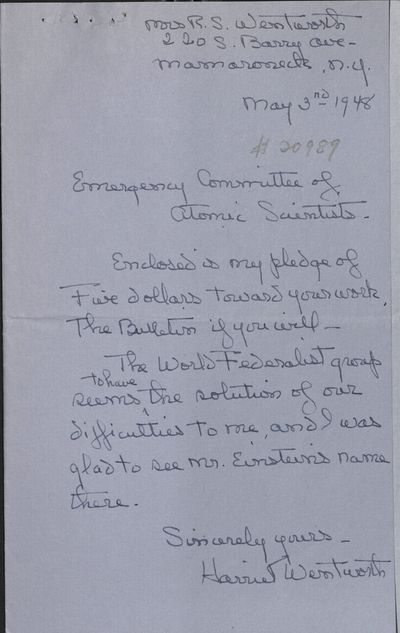 Mrs R. S. Wentworth
220 S. Barry Ave -
Mamaroneck, N.Y.
May 3rd 1948
# 20989
Emergency Committee of
Atomic Scientists -
Enclosed is my pledge of
Five dollars toward your work,
The Bulletin if you will -
The World Federalist group
to have
seems ^ the solution of our
difficulties to me, and I was
glad to see Mr. Einsteins name
there.
Sincerely yours -
Harriet Wentworth